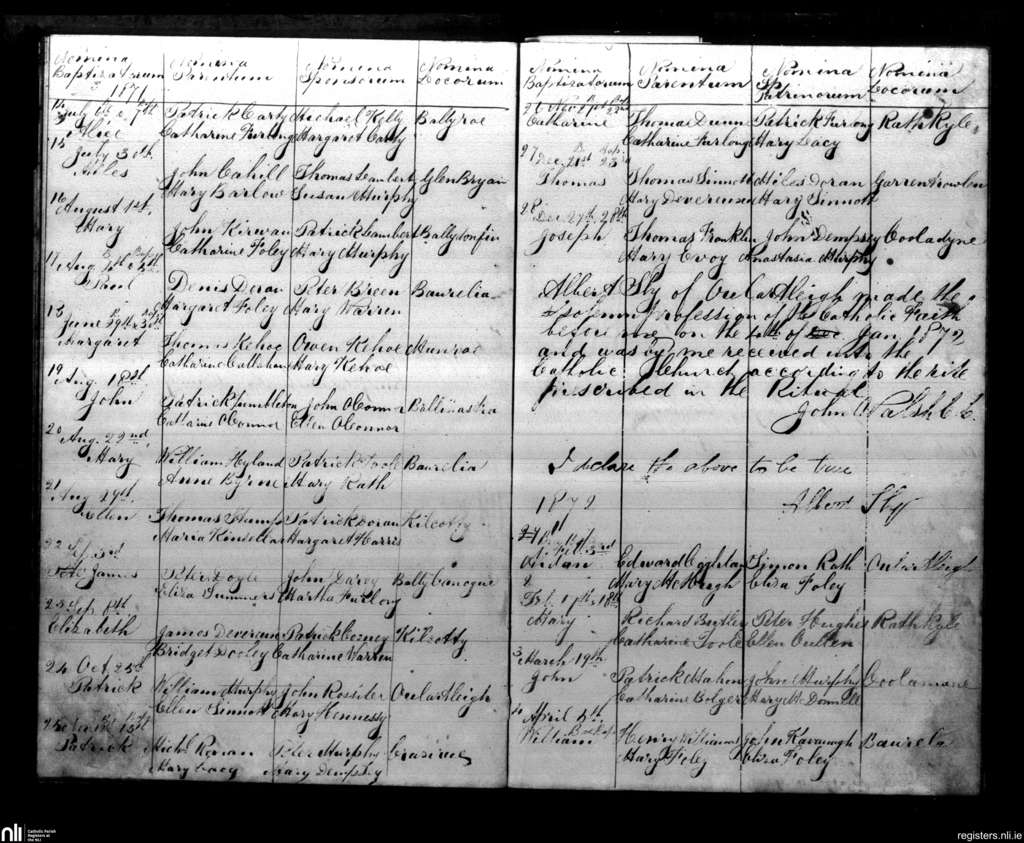 Nomina Baptizatorum Nomina Parentum Nomina Sponsorum Nomina Locorum
1871
14 July 6th 7th
Alice Patrick Carty Michael Kelly Ballyroe
Catharine Furlong Margaret Carty
15 July 30th
Miles John Cahill Thomas Lambert Glen Bryan
Mary Barlow Susan Murphy
16 August 1st
Mary John Kirwan Patrick Lambert
Catharine Foley Mary Murphy
17 Aug
Denis Doran Peter Breen Baurelia
Margaret Foley Mary Warren
18 June 29th 30th
Margaret Thomas Kehoe Owen Kehoe Munroe
Catharine Callahan Mary Kehoe
19 Aug. 18th
John Patrick John O'Connor
Catharine O'Connor Ellen O'Connor
20 Aug. 22nd
Mary William Hyland Patrick Toole Baurelia
Anne Byrne Mary Rath
21 Aug 29th
Ellen Thomas Stamp Patrick Doran Kilcotty
Maria Kinsella Margaret Harris
22 Sep. 3rd
James Peter Doyle John Darcy Ballycanogue
Eliza Summers Martha Furlong
23 Sep. 8th
Elizabeth James Devereux Patrick Kilcotty
Bridget Dooley Catharine Warren
24 Oct 25th
Patrick William Murphy John Rossiter Oulartleigh
Ellen Sinnott Mary Hennessy
25
Patrick Mich. Ronan Peter Murphy
Mary Lacy Mary Dempsey
Nomina Baptizatorum Nomina Parentum Nomina Patrinorum Nomina Locorum
26 Nov.
Catharine Thomas Dunn Patrick Furlong Rathkyle
Catharine Furlong Mary Lacy
27 Dec. 21st Bap. 23rd
Thomas Thomas Sinnott Miles Doran
Mary Devereux Mary Sinnott
28 Dec 27th 28th
Joseph Thomas Franklin John Dempsey Cooladyne
Mary Evoy Anastasia Murphy
Albert Sly of Oulartleigh made the
solemn Profession of the Catholic Faith
before me on the of Jan 1872
and was by me received into the
Catholic Church according to the rite
prescribed in the Ritual
John Walsh C.C.
I declare the above to be true
1872 Albert Sly
Feb 3rd
Aidan Edward Coghlan Simon Rath Oulartleigh
Mary McVeagh Eliza Foley
2 Feb. 17th 18th
Mary Richard Butler Peter Hughes Rathkyle
Catharine Toole Ellen Cullen
3 March 19th
John Patrick Mahon John Murphy Coolamane
Catharine Bolger Mary McDonnell
4 April 5th
William Henry Williams John Kavanagh Baurela
Mary Foley Eliza Foley
nli Catholic Parish Registers at the NLI
registers.nli.ie